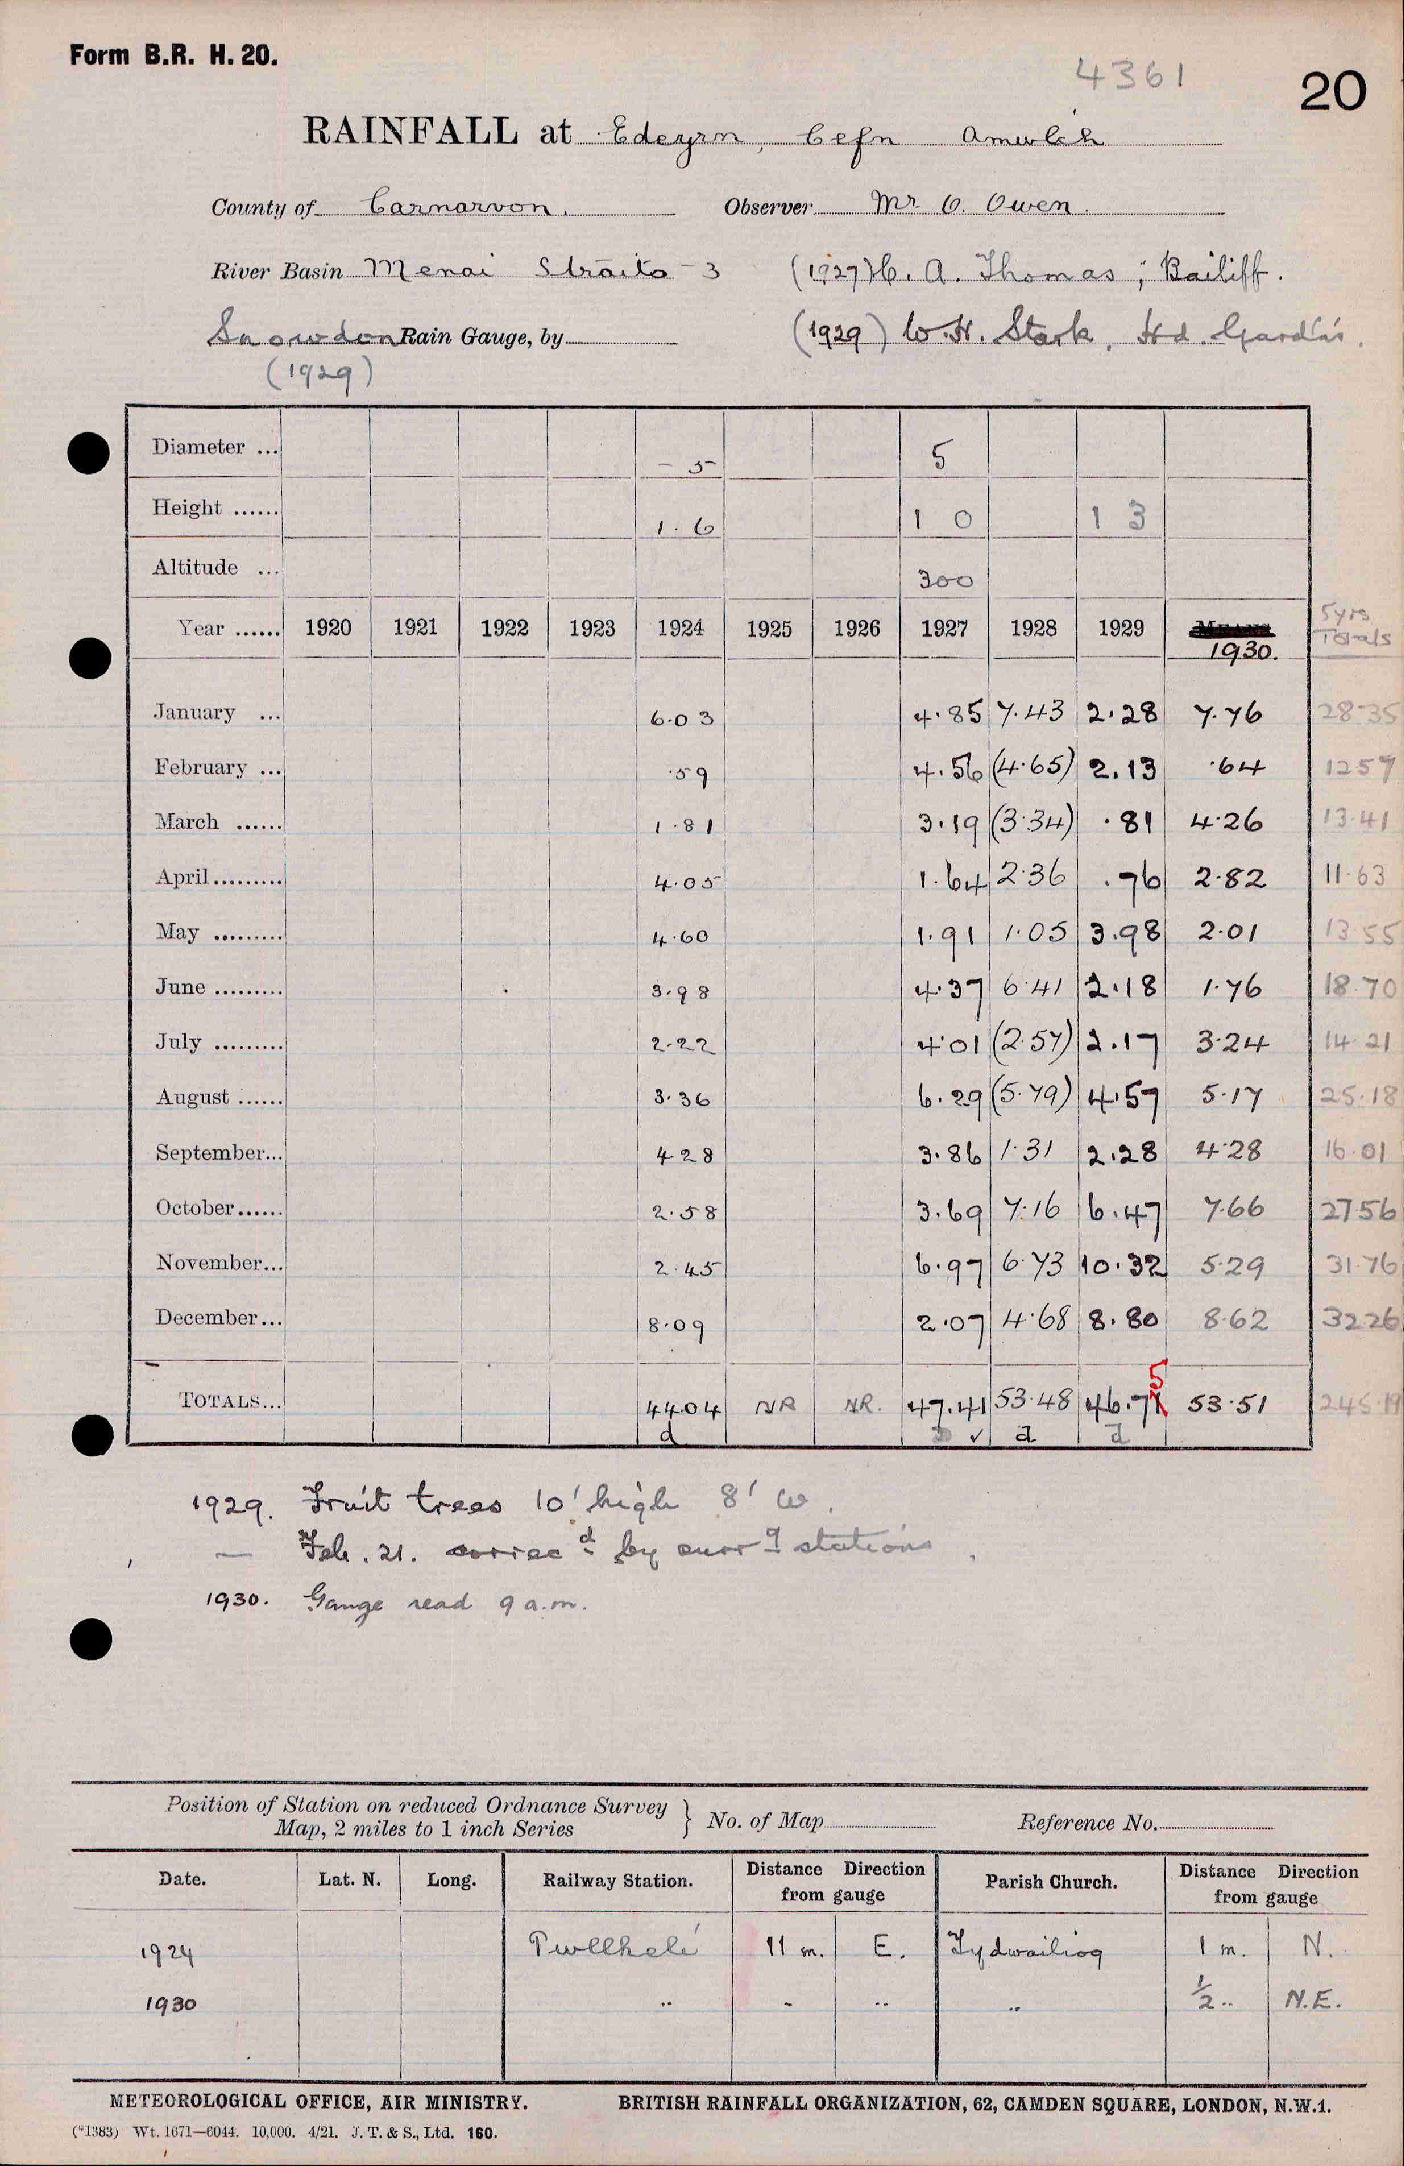 Form B.R. H. 20.
4361
20
RAINFALL at Edeyrn, Cefn Amwlch
County of Carnarvon. Observer Mr O. Owen.
River Basin Menai Straits - 3 (1927) C. A. Thomas, Bailiff.
Snowdon Rain Gauge, by (1929) W. H. Stark, Hd. Gard'n'r.
(1929)
Diameter ... 5 5
Height ...... 1. 6 1 0 1 3
Altitude ... 300
Year ...... 1920 1921 1922 1923 1924 1925 1926 1927 1928 1929 1930. 5yrs Totals
January ... 6.03 4.85 7.43 2.28 7.76 28.35
February ... .59 4.56 (4.65) 2.13 .64 12 57
March ...... 1.81 3.19 (3.34) .81 4.26 13.41
April......... 4.05 1.64 2.36 .76 2.82 11.63
May ......... 4.60 1.91 1.05 3.98 2.01 13 55
June ......... 3.98 4.37 6.41 2.18 1.76 18.70
July ......... 2.22 4.01 (2.57) 2.17 3.24 14 21
August ...... 3.36 6.29 (5.79) 4.57 5.17 25.18
September... 4 28 3.86 1.31 2.28 4.28 16.01
October...... 2.58 3.69 7.16 6.47 7.66 27 56
November... 2.45 6.97 6.73 10.32 5.29 31.76
December... 8.09 2.07 4.68 8.80 8.62 32 26
5
TOTALS... 44 04 NR NR. 47.41 53.48 46.71 53.51 245.19
d ✓ d d
1929. Fruit trees 10' high 8' W.
— Feb. 21. correcd by surrg stations.
1930. Gauge read 9 a.m.
Position of Station on reduced Ordnance Survey
Map, 2 miles to 1 inch Series } No. of Map Reference No.
Date. Lat. N. Long. Railway Station. Distance Direction from gauge Parish Church. Distance Direction from gauge
1924 Pwllheli 11 m. E. Tydweiliog 1 m. N.
1930 " - " " 1/2 " N.E.
METEOROLOGICAL OFFICE, AIR MINISTRY. BRITISH RAINFALL ORGANIZATION, 62, CAMDEN SQUARE, LONDON, N.W.1.
(*1383) Wt. 1671—6044. 10,000. 4/21. J. T. & S., Ltd. 160.